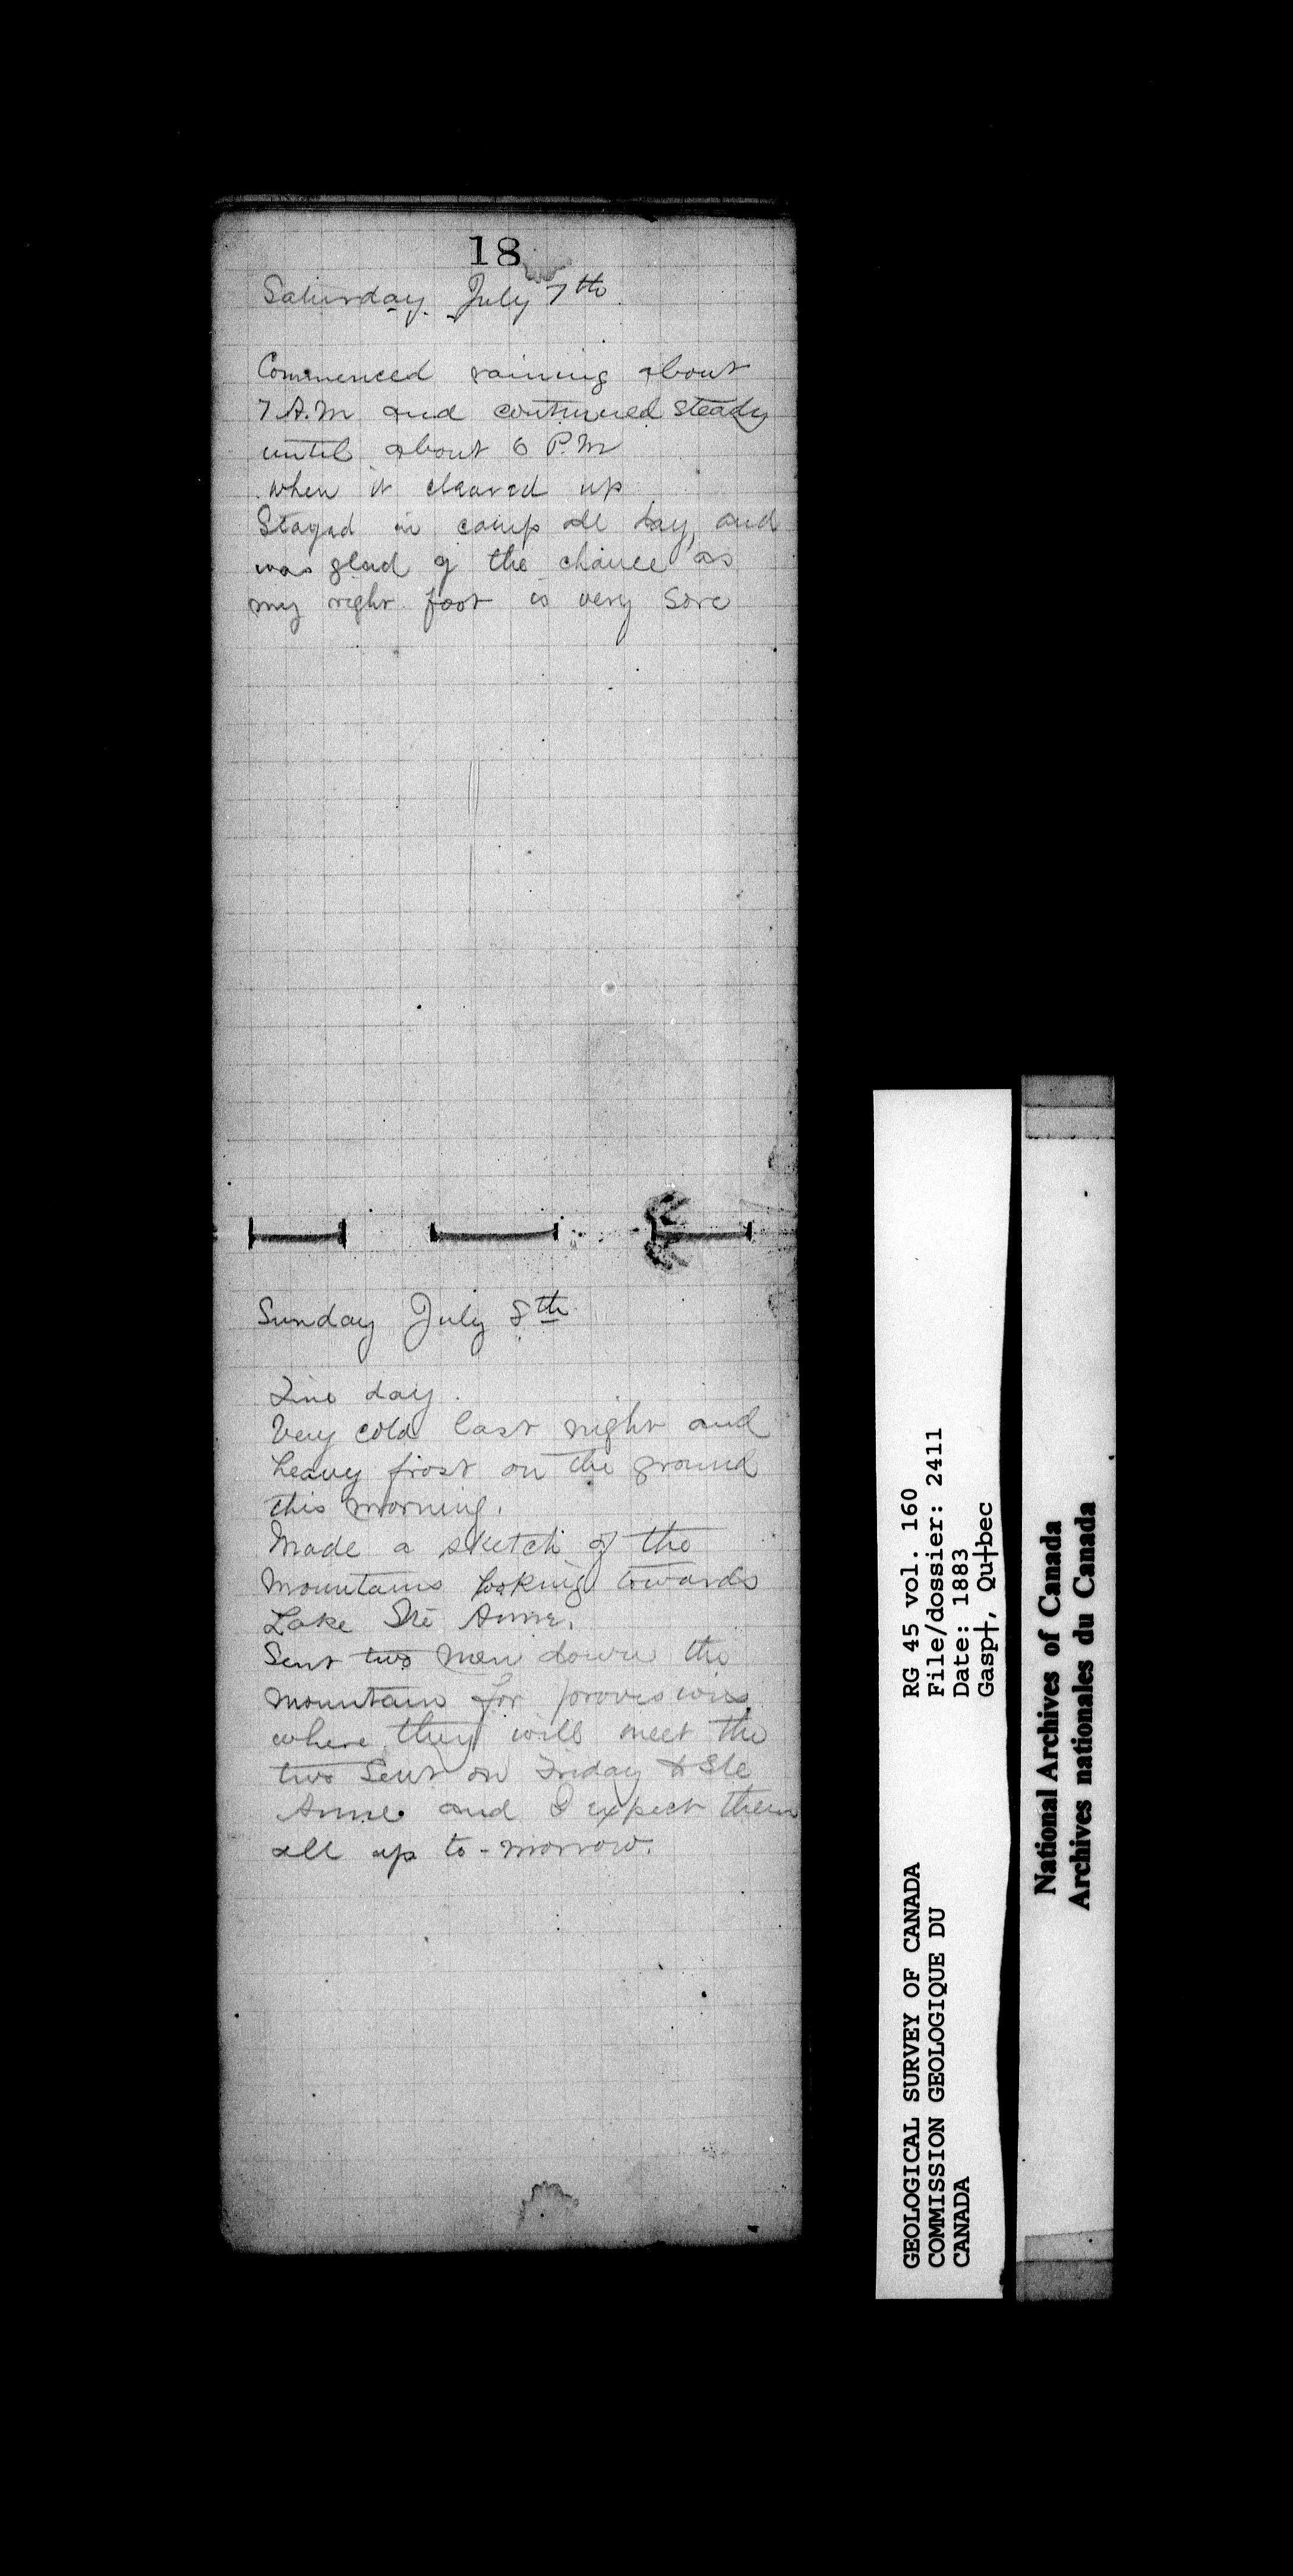 18
Saturday July 7th
Commenced raining about
7 A.M and continued steady
until about 6 P.M
when it cleared up
Stayed in camp all day, and
was glad of the chance as
my right foot is very sore
Sunday July 8th
Fine day.
Very cold last night and
heavy frost on the ground
this morning.
Made a sketch of the
Mountains looking towards
Lake Ste Anne.
Sent two men down the
mountain for provisions
where they will meet the
two sent on Friday to Ste
Anne. and I expect them
all up to-morrow.
GEOLOGICAL SURVEY OF CANADA
COMMISSION GEOLOGIQUE DU
CANADA
RG 45 vol. 160
File/dossier: 2411
Date: 1883
Gasp†, Qu†bec
National Archives of Canada
Archives nationales du Canada